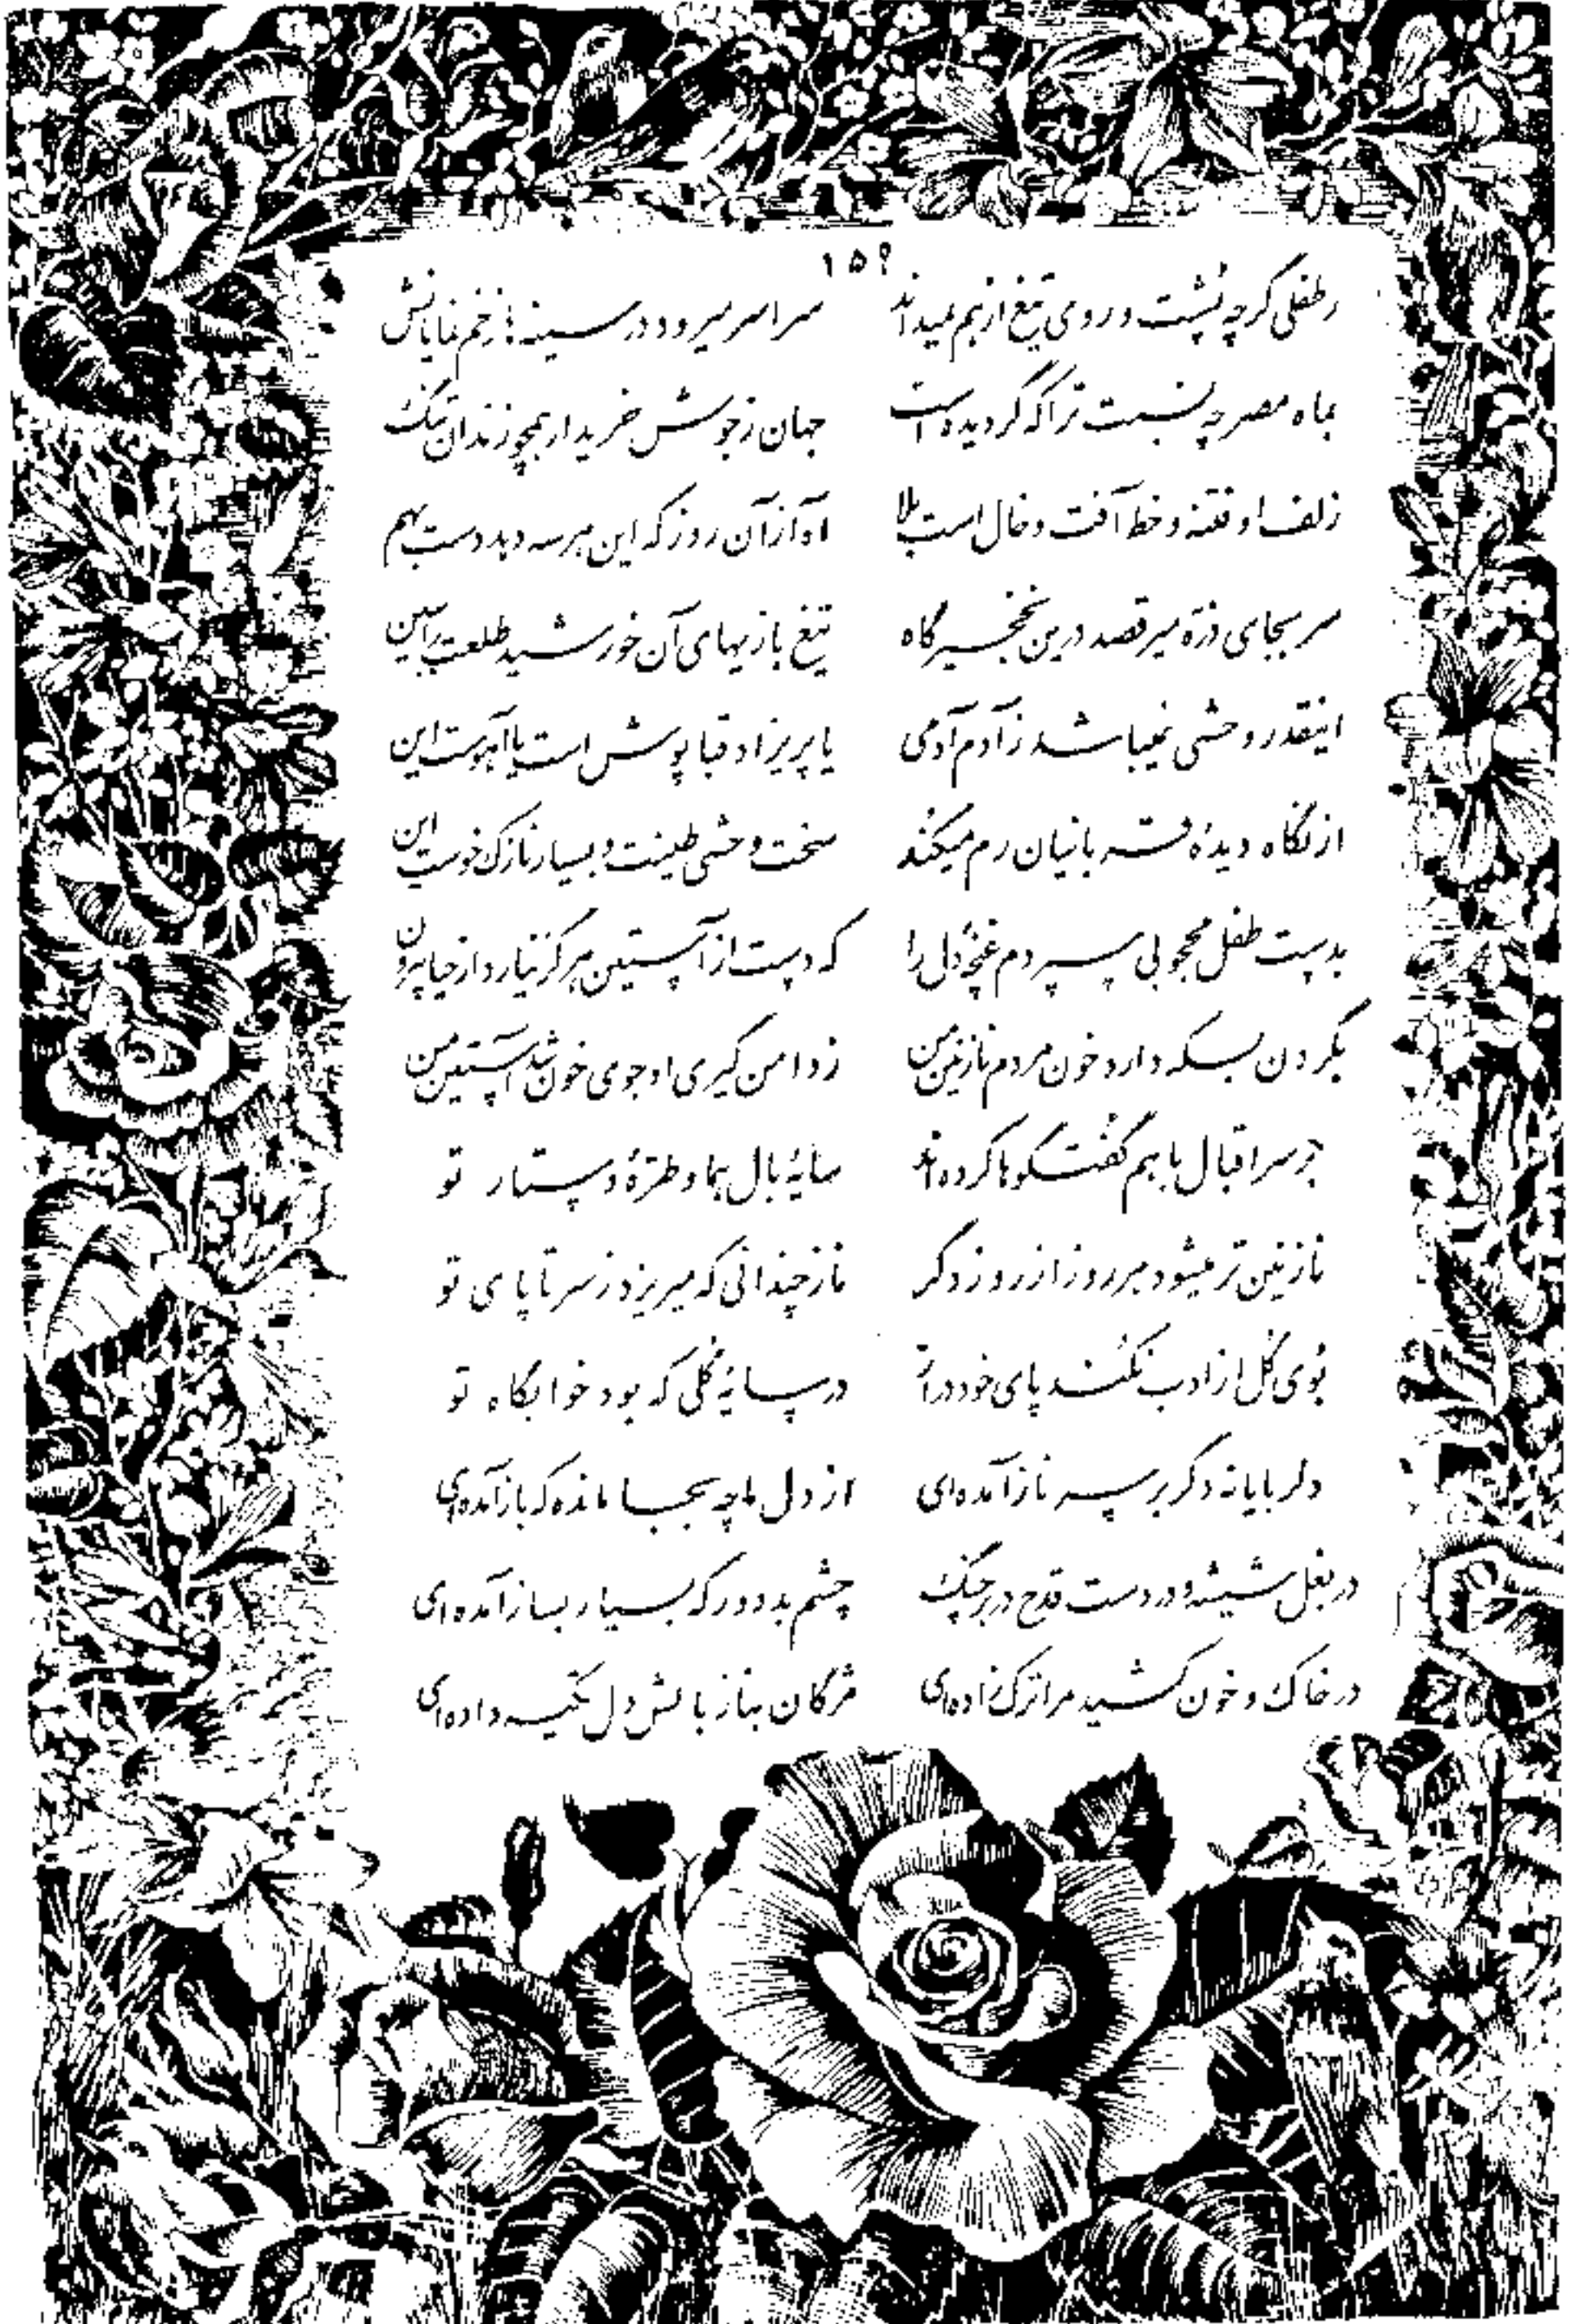 ۱۵۹
زطفلی گرچه پشت و روی تیغ از هم نمیداند سراسر میرود در سینه‌ها زخم نمایانش
بماه مصر چه نسبت ترا که گردیده است جهان ز جوش خریدار همچو زندان تنگ
زلف او فتنه و خط آفت و خال است بلا آه از آن روز که این هر سه دهد دست بهم
سر بجای ذره میرقصد درین نخجیرگاه تیغ بازیهای آن خورشید طلعت را ببین
اینقدر وحشی نمیباشد ز آدم آدمی یا پریزاد قباپوش است یا آهوست این
از نگاه دیدهٔ قربانیان رم میکند سخت وحشی طینت و بسیار نازک خوست این
بدست طفل محجوبی سپردم غنچهٔ دل را که دست از آستین هرگز نیارد از حیا بیرون
بگردن بسکه دارد خون مردم نازنین من ز دامن گیری او جوی خون شد آستین من
بر سر اقبال با هم گفتگوها کرده‌اند سایهٔ بال هما و طرهٔ دستار تو
نازنین تر میشود هر روز از روز دگر ناز چندانی که میریزد ز سر تا پای تو
بوی گل از ادب نکند پای خود دراز در سایهٔ گلی که بود خوابگاه تو
دلربایانه دگر بر سر ناز آمده‌ای از دل ما چه بجا مانده که باز آمده‌ای
در بغل شیشه و در دست قدح در بر چنگ چشم بد دور که بسیار بساز آمده‌ای
در خاک و خون کشید مرا ترک زاده‌ای مژگان بناز بالش دل تکیه داده‌ای